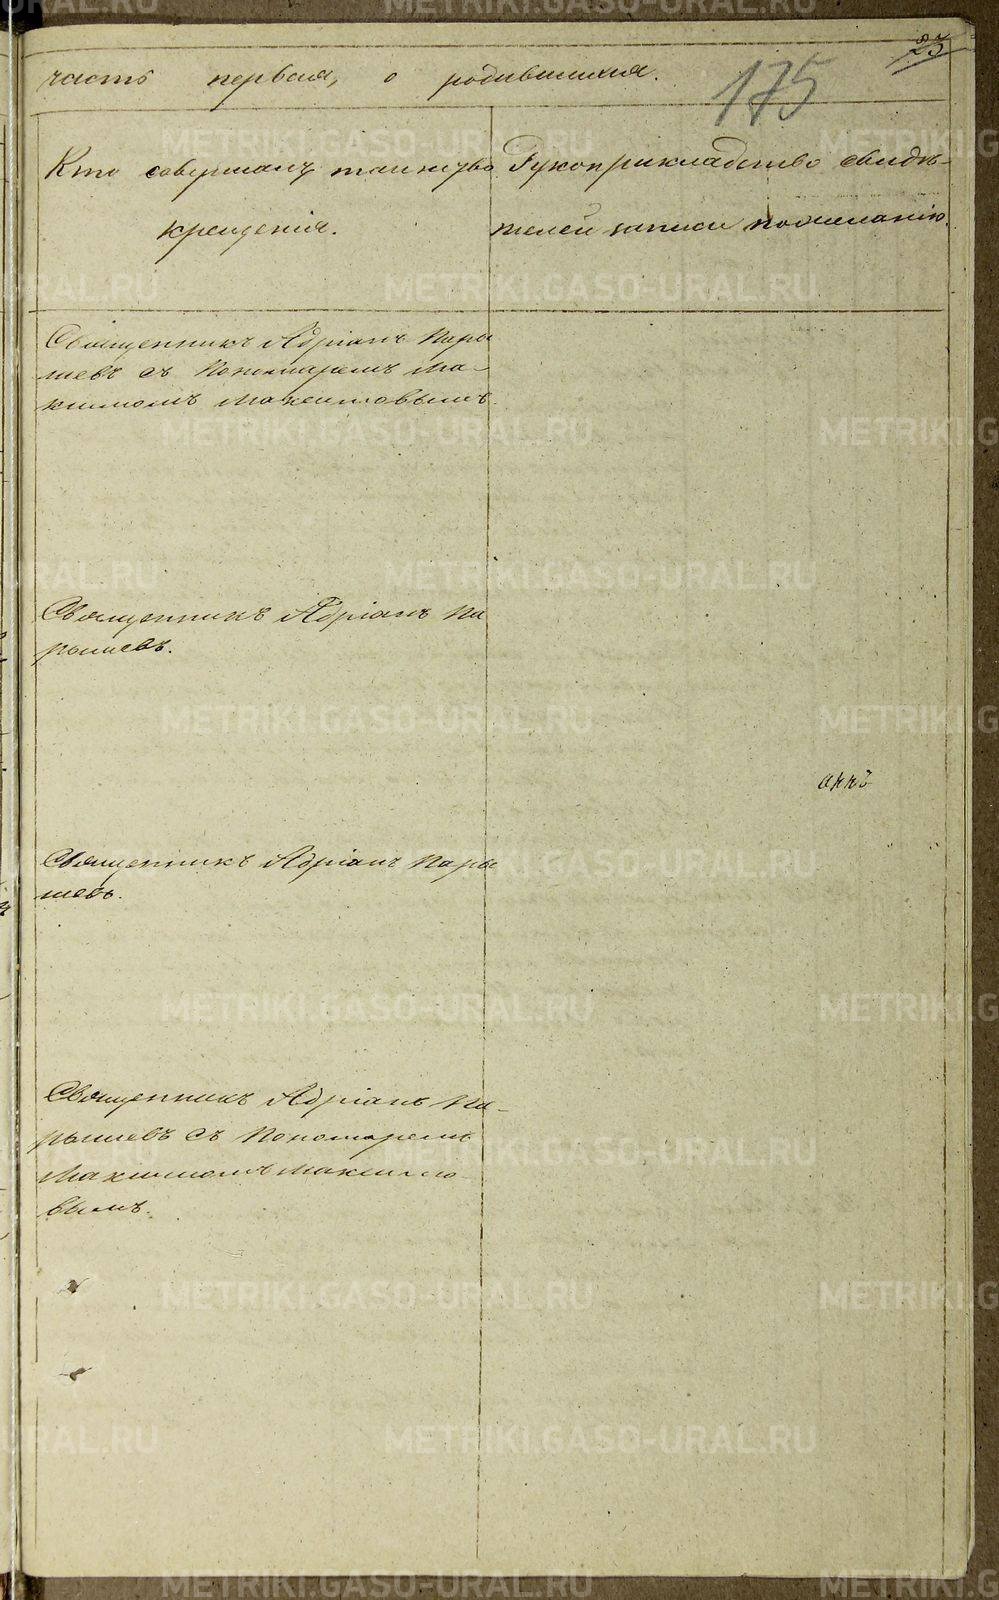 23
часть первая, о родившихся.
175
Кто совершалъ таинство
крещенія.
Рукоприкладство свидѣ-
телей записи по желанію.
Священникъ Адріанъ Пары
шевъ съ Пономаремъ Ма-
ксимомъ Максимовымъ.
Священникъ Адріанъ Па
рышевъ.
Священникъ Адріанъ Пары
шевъ.
Священникъ Адріанъ Па-
рышевъ съ Пономаремъ
Максимомъ Максимо-
вымъ.
METRIKI.GASO-URAL.RU